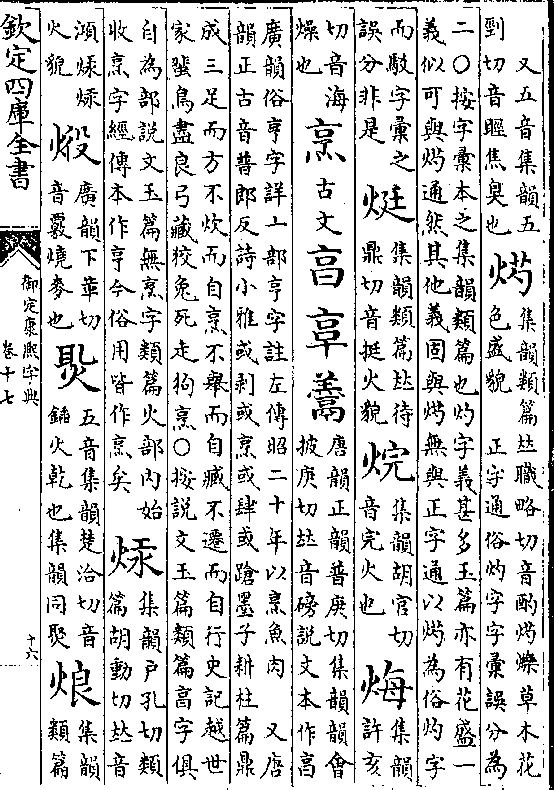 又五音集韻五
剄切音脛焦臭也
集韻類篇𠀤職略切音酌爍草木花
色盛貌 正字通俗灼字字彙誤分為
二○按字彙本之集韻類篇也灼字義甚多玉篇亦有花盛一
義似可與通然其他義固與無與正字通以為俗灼字
而駁字彙之
誤分非是
烶
集韻類篇𠀤待
鼎切音挺火貌
烷
集韻胡官切
音完火也
烸
集韻
許亥
切音海
燥也
烹
古文
亯
唐韻正韻普庚切集韻韻會
披庚切𠀤音磅說文本作亯
廣韻俗亨字詳亠部亨字註左傳昭二十年以烹魚肉 又唐
韻正古音普郎反詩小雅或剥或烹或肆或蹌墨子耕柱篇鼎
成三足而方不炊而自烹不舉而自臧不遷而自行史記越世
家蜚鳥盡良弓藏狡兔死走狗烹○按說文玉篇類篇亯字俱
自為部說文玉篇無烹字類篇火部內始
收烹字經傳本作亨今俗用皆作烹矣
集韻戶孔切類
篇胡動切𠀤音
澒
火貌
廣韻下革切
音覈燒麥也
五音集韻楚洽切音
鍤火乾也集韻同
烺
集韻
類篇
欽定四庫全書
御定康熙字典
卷十七
十六